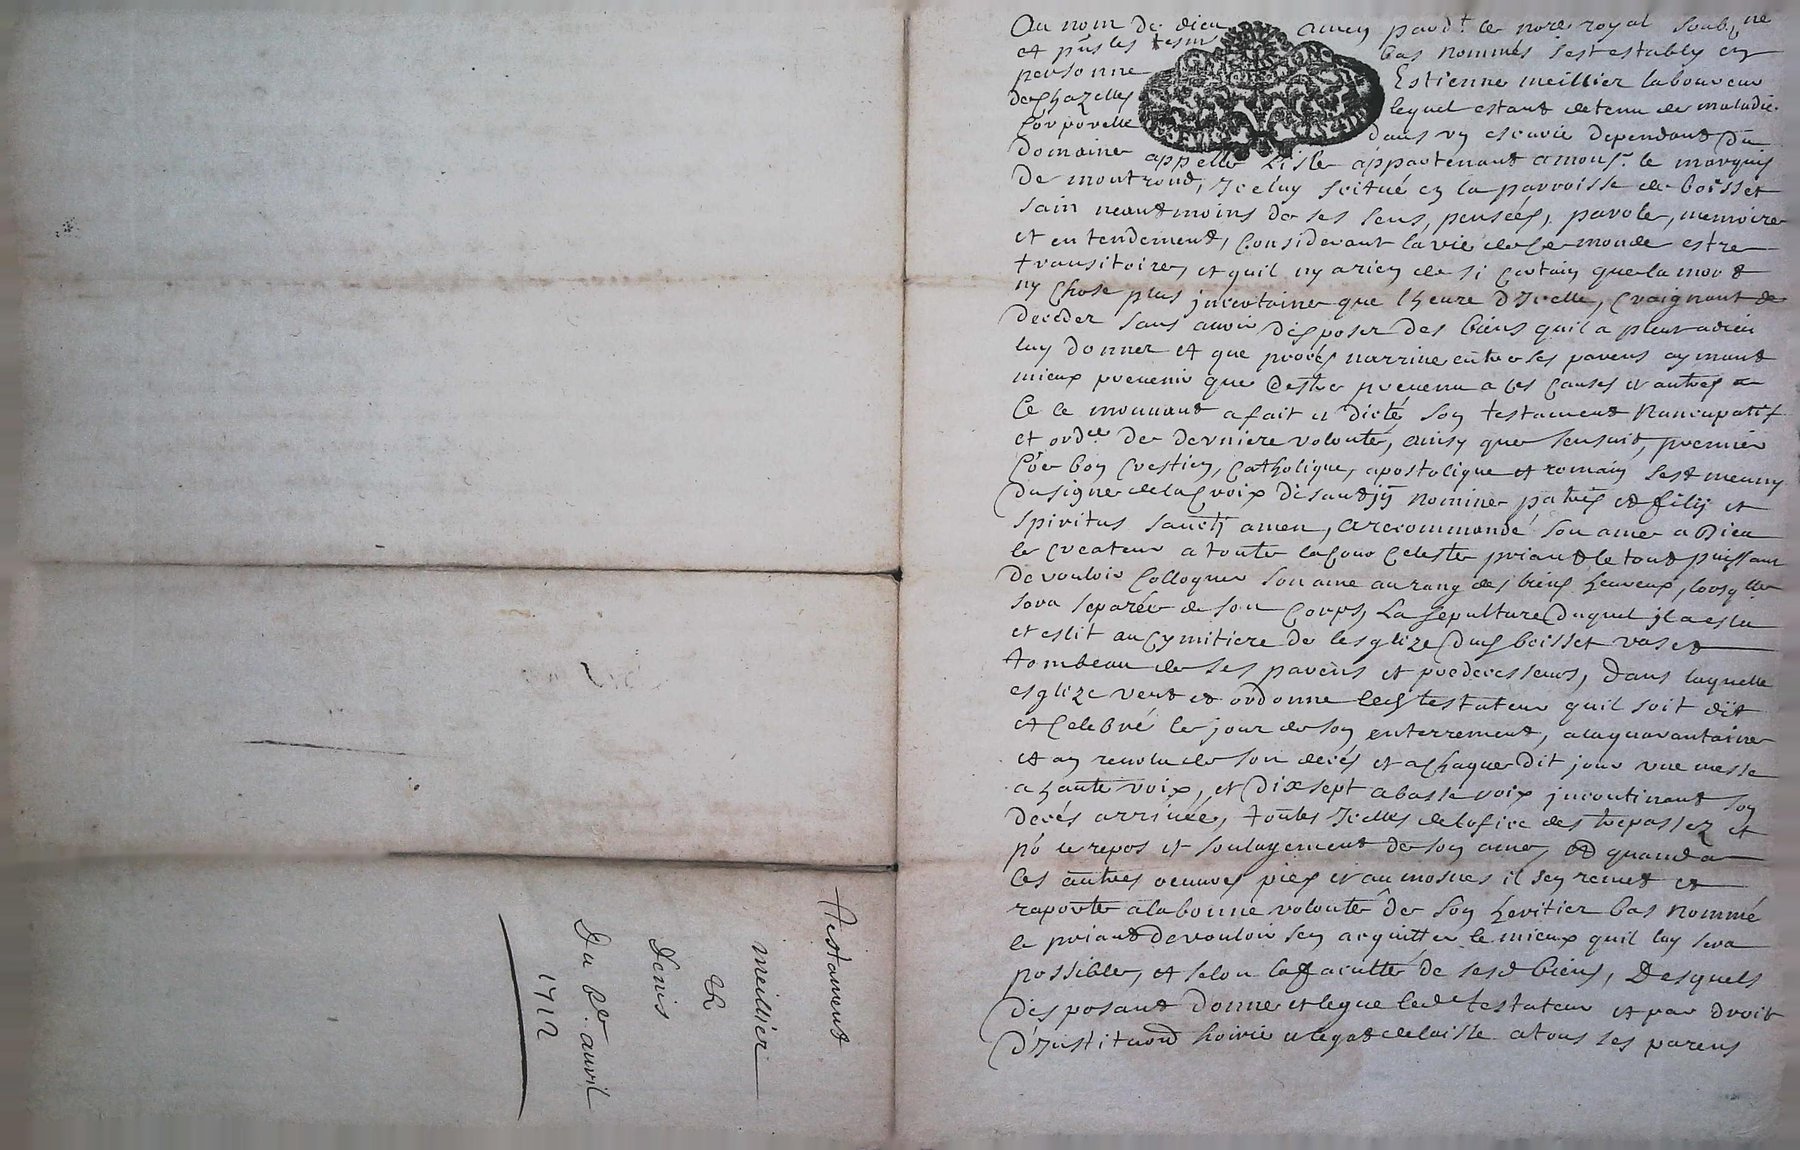 Au nom de dieu amen pard.t le nore royal soub.ne
et p̃ns les tesm bas nommés sest estably en
personne Estienne meillier laboureur
de Chazelles lequel estant detenu de maladie
Corporelle dans vn escurie dependant du
domaine appellé Lisle appartenant a mons.r le marquis
de montrond, Iceluy scitué en la parroisse de boisset
sain neantmoins de ses sens, pensées, parole, memoire
et entendement, Considerant la vie de Ce monde estre
transitoire, et quil ny a rien de si Certain que la mort
ny Chose plus jncertaine que lheure dIcelle, Craignant de
deceder sans auoir disposer des biens quil a pleu a dieu
luy donner et que procés narriue entre ses parens aymant
mieux preuenir que destre preuenu a Ces Causes et autres a
Ce le mouuant a fait et dicté son testament Nuncupatif
et ord.ce de derniere volonté, ainsy que sensuit, premier
Coe bon Crestien, Catholique, apostolique et romain sest meuny
du signe de la Croix disant jñ nomine patris et filij et
spiritus sancti amen, a recommandé son ame a Dieu
le Createur a toute la Cour Celeste priant le tout puissant
de vouloir Colloquer son ame au rang des biens heureux, lorsqlle
sera separée de son Corps, La sepulture duquel jl a eslu
et eslit au Cymitiere de lesglize dud boisset vas et
tombeau de ses parens et predecesseurs, dans laquelle
esglize veut et ordonne led testateur quil soit dit
et Celebré le jour de son enterrement, a la quarantaine
et an reuolu de son decés et a Chaque dit jour vne messe
a haute voix, et dix sept a basse voix jncontinant son
decés arriuée, toutes Icelles de lofice des trepassez et
po le repos et soulagement de son ame, et quand a
Ces autres oeuures pies et aumosnes il sen remet et
raporte a la bonne volonté de son heritier bas nommé
le priant de vouloir sen acquitter le mieux quil luy sera
possible, et selon la faculté de sesd biens, Desquels
disposant donne et legue led testateur et par droit
d'Institu.on hoirie et legat delaisse a tous ses parens
Testament
meillier
Denis
Du 8e. auril
1712